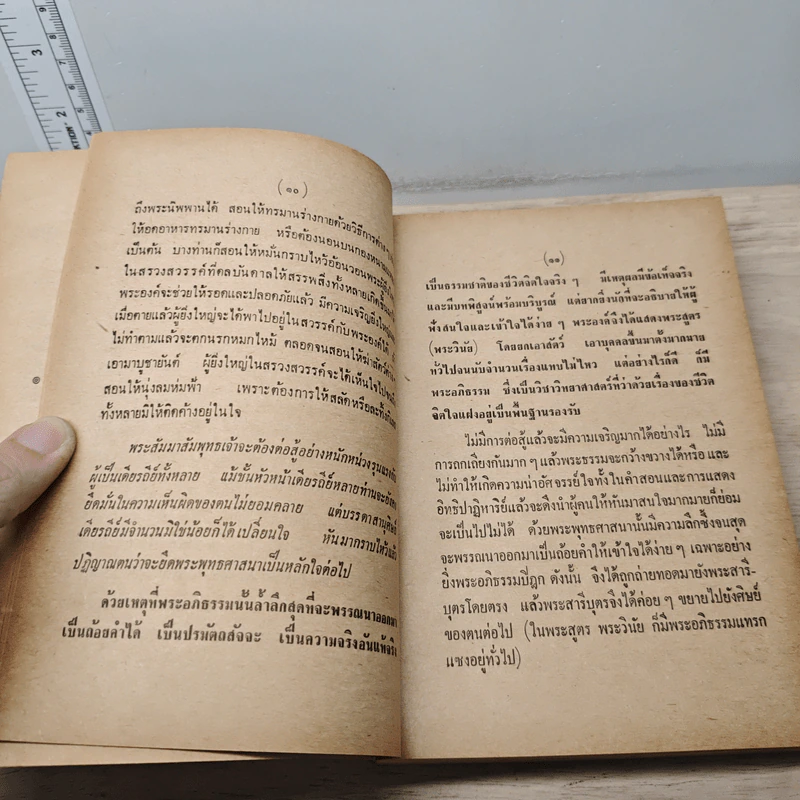 (๑๐)
ถึงพระนิพพานได้ สอนให้ทรมานร่างกายด้วยวิธีการต่าง ๆ
ให้อดอาหารทรมานร่างกาย หรือต้องนอนบนกองหนาม
เป็นต้น บางท่านก็สอนให้หมั่นกราบไหว้อ้อนวอนพระผู้เป็น
ในสรวงสวรรค์ที่ดลบันดาลให้สรรพสิ่งทั้งหลายเกิดขึ้น
พระองค์จะช่วยให้รอดและปลอดภัยแล้ว มีความเจริญยิ่ง
เมื่อตายแล้วผู้ยิ่งใหญ่จะได้พาไปอยู่ในสวรรค์กับพระองค์ได้
ไม่ทำตามแล้วจะตกนรกหมกไหม้ ตลอดจนสอนให้ฆ่าสัตว์
เอามาบูชายันต์ ผู้ยิ่งใหญ่ในสรวงสวรรค์จะได้เห็นใจ
สอนให้นุ่งลมห่มฟ้า เพราะต้องการให้สลัดหรือละทิ้ง
ทั้งหลายมิให้ติดค้างอยู่ในใจ
พระสัมมาสัมพุทธเจ้าจะต้องต่อสู้อย่างหนักหน่วงรุนแรงกับ
ผู้เป็นเดียรถีย์ทั้งหลาย แม้ขั้นหัวหน้าเดียรถีย์หลายท่านจะยังคง
ยึดมั่นในความเห็นผิดของตนไม่ยอมคลาย แต่บรรดาสานุศิษย์
เดียรถีย์มีจำนวนมิใช่น้อยก็ได้เปลี่ยนใจ หันมากราบไหว้แล้ว
ปฏิญาณตนว่าจะยึดพระพุทธศาสนาเป็นหลักใจต่อไป
ด้วยเหตุที่พระอภิธรรมนั้นล้ำลึกสุดที่จะพรรณนาออกมา
เป็นถ้อยคำได้ เป็นปรมัตถสัจจะ เป็นความจริงอันแท้จริง
(๑๑)
เป็นธรรมชาติของชีวิตจิตใจจริง ๆ มีเหตุผลมีข้อเท็จจริง
และมีบทพิสูจน์พร้อมบริบูรณ์ แต่ยากยิ่งนักที่จะอธิบายให้ผู้
ฟังสนใจและเข้าใจได้ง่าย ๆ พระองค์จึงได้แสดงพระสูตร
(พระวินัย) โดยยกเอาสัตว์ เอาบุคคลขึ้นมาตั้งมากมาย
ทั่วไปจนนับจำนวนเรื่องแทบไม่ไหว แต่อย่างไรก็ดี ก็มี
พระอภิธรรม ซึ่งเป็นวิชาวิทยาศาสตร์ที่ว่าด้วยเรื่องของชีวิต
จิตใจแฝงอยู่เป็นพื้นฐานรองรับ
ไม่มีการต่อสู้แล้วจะมีความเจริญมากได้อย่างไร ไม่มี
การถกเถียงกันมาก ๆ แล้วพระธรรมจะกว้างขวางได้หรือ และ
ไม่ทำให้เกิดความน่าอัศจรรย์ใจทั้งในคำสอนและการแสดง
อิทธิปาฏิหาริย์แล้วจะดึงนำผู้คนให้หันมาสนใจมากมายก็ย่อม
จะเป็นไปไม่ได้ ด้วยพระพุทธศาสนานั้นมีความลึกซึ้งจนสุด
จะพรรณนาออกมาเป็นถ้อยคำให้เข้าใจได้ง่าย ๆ เฉพาะอย่าง
ยิ่งพระอภิธรรมปิฎก ดังนั้น จึงได้ถูกถ่ายทอดมายังพระสารี-
บุตรโดยตรง แล้วพระสารีบุตรจึงได้ค่อย ๆ ขยายไปยังศิษย์
ของตนต่อไป (ในพระสูตร พระวินัย ก็มีพระอภิธรรมแทรก
แซงอยู่ทั่วไป)